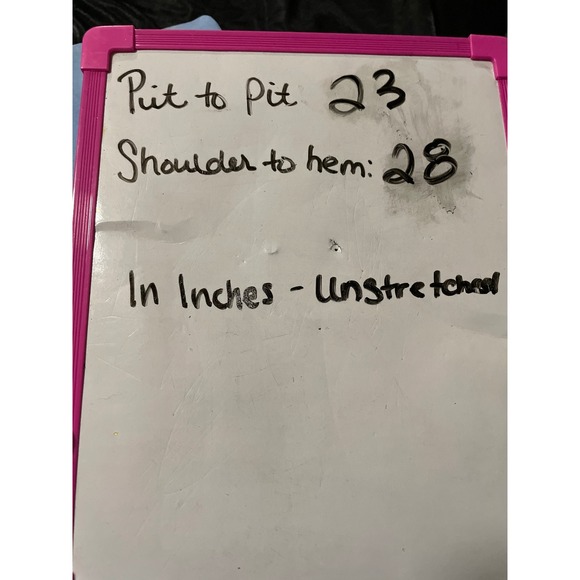 Pit to Pit 23
Shoulder to hem: 28
In Inches - Unstretched